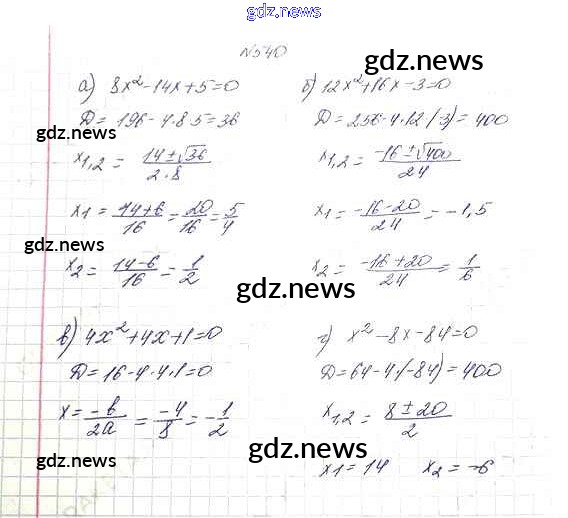 gdz.news
№540
gdz.news
а) 8x²-14x+5=0
D = 196-4·8·5=36
gdz.news
x1,2 = (14±√36)/(2·8)
x1 = (14+6)/16 = 20/16 = 5/4
gdz.news
x2 = (14-6)/16 = 1/2
б) 12x²+16x-3=0
D = 256-4·12(-3)=400
gdz.news
x1,2 = (-16±√400)/24
x1 = (-16-20)/24 = -1,5
x2 = (-16+20)/24 = 1/6
gdz.news
в) 4x²+4x+1=0
D = 16-4·4·1=0
gdz.news
x = -b/2a = -4/8 = -1/2
gdz.news
г) x²-8x-84=0
D = 64-4·(-84)=400
gdz.news
x1,2 = (8±20)/2
gdz.news
x1 = 14 x2 = -6